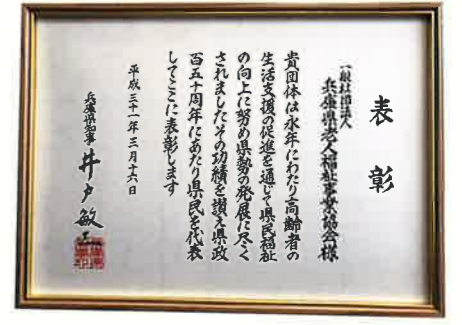 表彰
一般社団法人
兵庫県老人福祉事業協会様
貴団体は永年にわたり高齢者の
生活支援の促進を通じて県民福祉
の向上に努め県勢の発展に尽く
されましたその功績を讃え県政
百五十周年にあたり県民を代表
してここに表彰します
平成三十一年三月十六日
兵庫県知事 井戸敏三